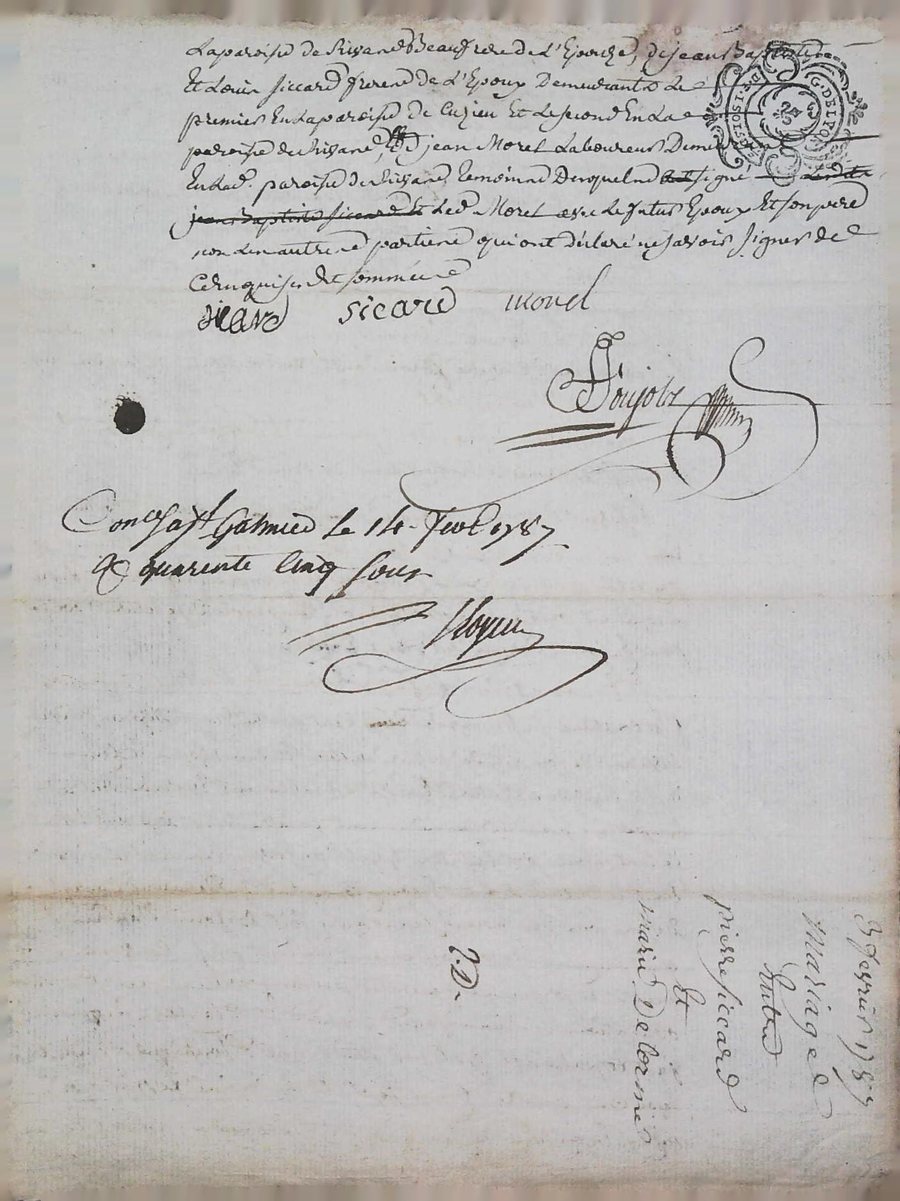 La paroisse de Rivas Beaufrere de L'Epouze, de jean Baptiste
Et Louis Siccard freres de L'Epoux Demeurants Le
premier En La paroisse de Cuzieu Et Le second En La
paroisse de Rivas, Et de jean Morel Laboureur Demeurant
En Lad. paroisse de Rivas, temoins Desquels signé
jean Baptiste Siccard Et Led. Morel avec Le futur Epoux Et son pere
non Les autres parties qui ont déclaré ne savoir signer de
Ce Enquis et sommées
sicard sicard morel
G. DE LYON
Con. a St Galmier Le 14 fevr. 1787
R quarente cinq sous
J.D.
3 fevrier 1787
Mariage
Entre
pierre siccard
Et
marie Delorme